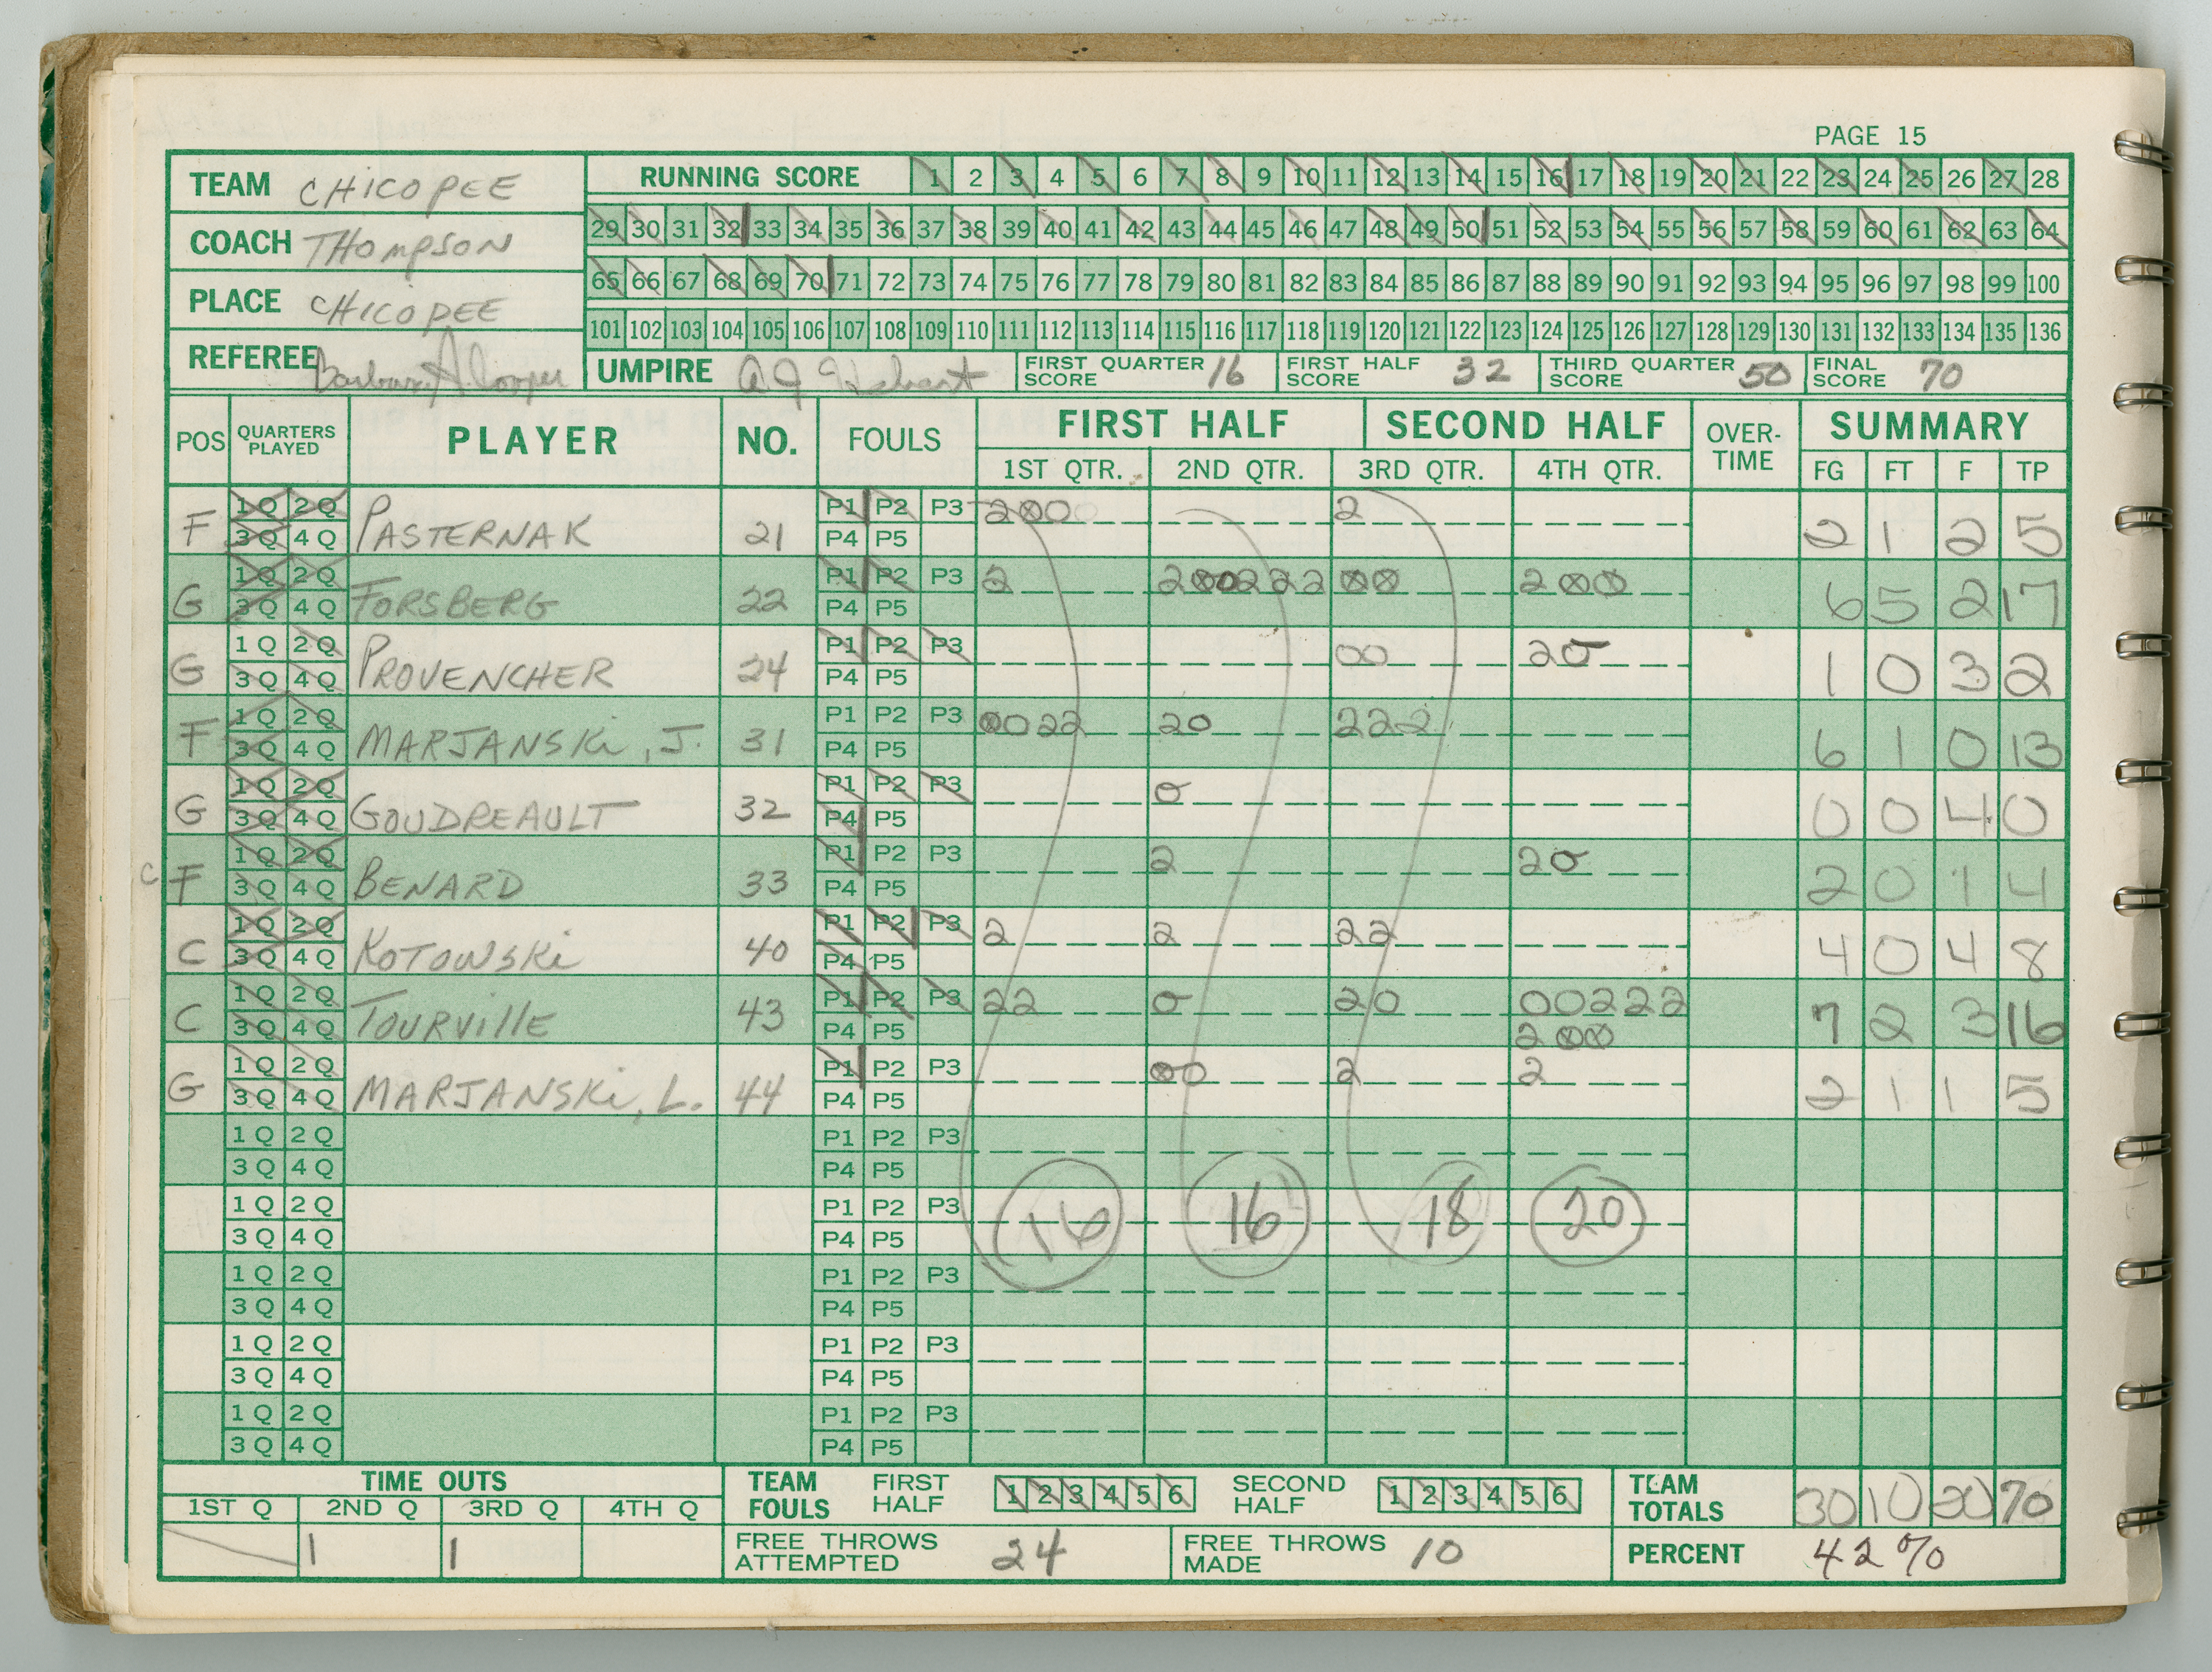 PAGE 15
TEAM CHICOPEE
RUNNING SCORE 1 2 3 4 5 6 7 8 9 10 11 12 13 14 15 16 17 18 19 20 21 22 23 24 25 26 27 28
COACH THOMPSON
29 30 31 32 33 34 35 36 37 38 39 40 41 42 43 44 45 46 47 48 49 50 51 52 53 54 55 56 57 58 59 60 61 62 63 64
PLACE CHICOPEE
65 66 67 68 69 70 71 72 73 74 75 76 77 78 79 80 81 82 83 84 85 86 87 88 89 90 91 92 93 94 95 96 97 98 99 100
101 102 103 104 105 106 107 108 109 110 111 112 113 114 115 116 117 118 119 120 121 122 123 124 125 126 127 128 129 130 131 132 133 134 135 136
REFEREE Barbara A. Cooper
UMPIRE
FIRST QUARTER SCORE 16
FIRST HALF SCORE 32
THIRD QUARTER SCORE 50
FINAL SCORE 70
POS QUARTERS PLAYED PLAYER NO. FOULS FIRST HALF SECOND HALF OVER-TIME SUMMARY
1ST QTR. 2ND QTR. 3RD QTR. 4TH QTR. FG FT F TP
F 1Q 2Q PASTERNAK 21 P1 P2 P3 2 2 2 1 2 5
3Q 4Q P4 P5
G 1Q 2Q FORSBERG 22 P1 P2 P3 2 200222 00 200 6 5 2 17
3Q 4Q P4 P5
G 1Q 2Q PROVENCHER 24 P1 P2 P3 00 20 1 0 3 2
3Q 4Q P4 P5
F 1Q 2Q MARJANSKi, J. 31 P1 P2 P3 0022 20 222 6 1 0 13
3Q 4Q P4 P5
G 1Q 2Q GOUDREAULT 32 P1 P2 P3 0 0 0 4 0
3Q 4Q P4 P5
C F 1Q 2Q BENARD 33 P1 P2 P3 2 20 2 0 1 4
3Q 4Q P4 P5
C 1Q 2Q KOTOWSKi 40 P1 P2 P3 2 2 22 4 0 4 8
3Q 4Q P4 P5
C 1Q 2Q TOURVillE 43 P1 P2 P3 22 0 20 00222 7 2 3 16
3Q 4Q P4 P5 200
G 1Q 2Q MARJANSKi, L. 44 P1 P2 P3 00 2 2 2 1 1 5
3Q 4Q P4 P5
1Q 2Q P1 P2 P3
3Q 4Q P4 P5
1Q 2Q P1 P2 P3 16 16 18 20
3Q 4Q P4 P5
1Q 2Q P1 P2 P3
3Q 4Q P4 P5
1Q 2Q P1 P2 P3
3Q 4Q P4 P5
1Q 2Q P1 P2 P3
3Q 4Q P4 P5
TIME OUTS
1ST Q 2ND Q 3RD Q 4TH Q
1 1
TEAM FOULS FIRST HALF 1 2 3 4 5 6 SECOND HALF 1 2 3 4 5 6
TEAM TOTALS 30 10 20 70
FREE THROWS ATTEMPTED 24
FREE THROWS MADE 10
PERCENT 42%